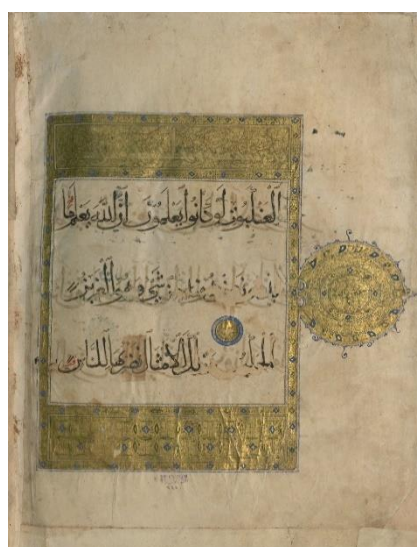 ٱلْعَنْكَبُوتِ لَوْ كَانُوا يَعْلَمُونَ إِنَّ اللَّهَ يَعْلَمُ مَا
يدعون من دونه من شَيْءٍ وَهُوَ الْعَزِيزُ
الْحَكِيمُ وَتِلْكَ الْأَمْثَالُ نَضْرِبُهَا لِلنَّاسِ